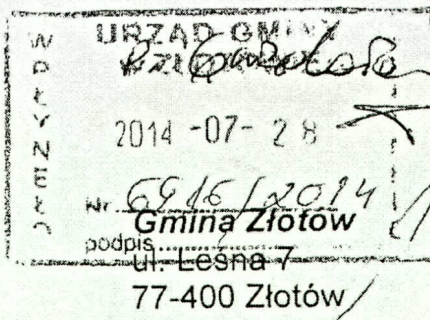 WPŁYNĘŁO
URZĄD GMINY
2014 -07- 28
Nr 6916/2014
Gmina Złotów
podpis
ul. Leśna 7
77-400 Złotów